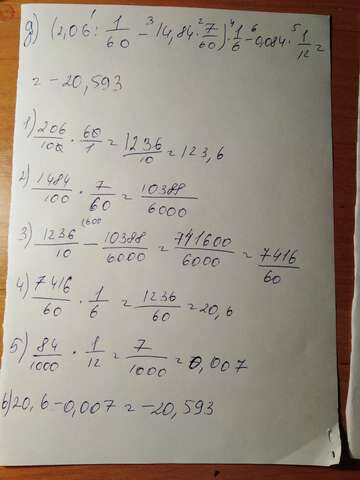 д) (2,06 : 1/60 - 14,84 · 7/60) · 1/6 - 0,084 · 1/12 =
= -20,593
1) 206/100 · 60/1 = 1236/10 = 123,6
2) 1484/100 · 7/60 = 10388/6000
3) 1236/10 - 10388/6000 = 741600/6000 = 7416/60
4) 7416/60 · 1/6 = 1236/60 = 20,6
5) 84/1000 · 1/12 = 7/1000 = 0,007
6) 20,6 - 0,007 = -20,593